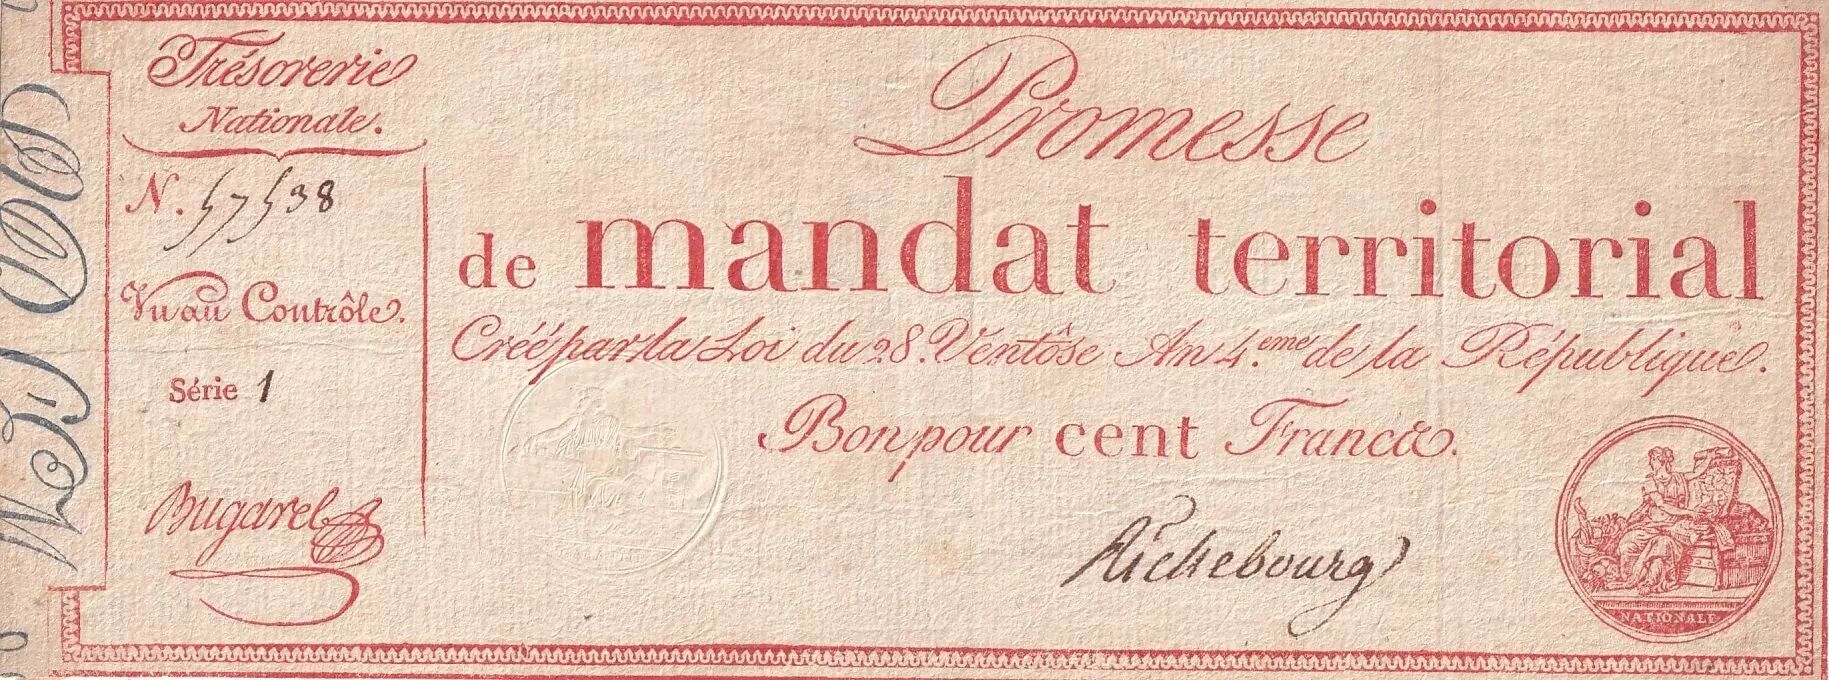 Trésorerie
Nationale.
N. 57538
Vu au Contrôle.
Série 1
Bugarel
Promesse
de mandat territorial
Créé par la Loi du 28. Ventôse An 4.eme de la République.
Bon pour cent Francs.
Richebourg
NATIONALE